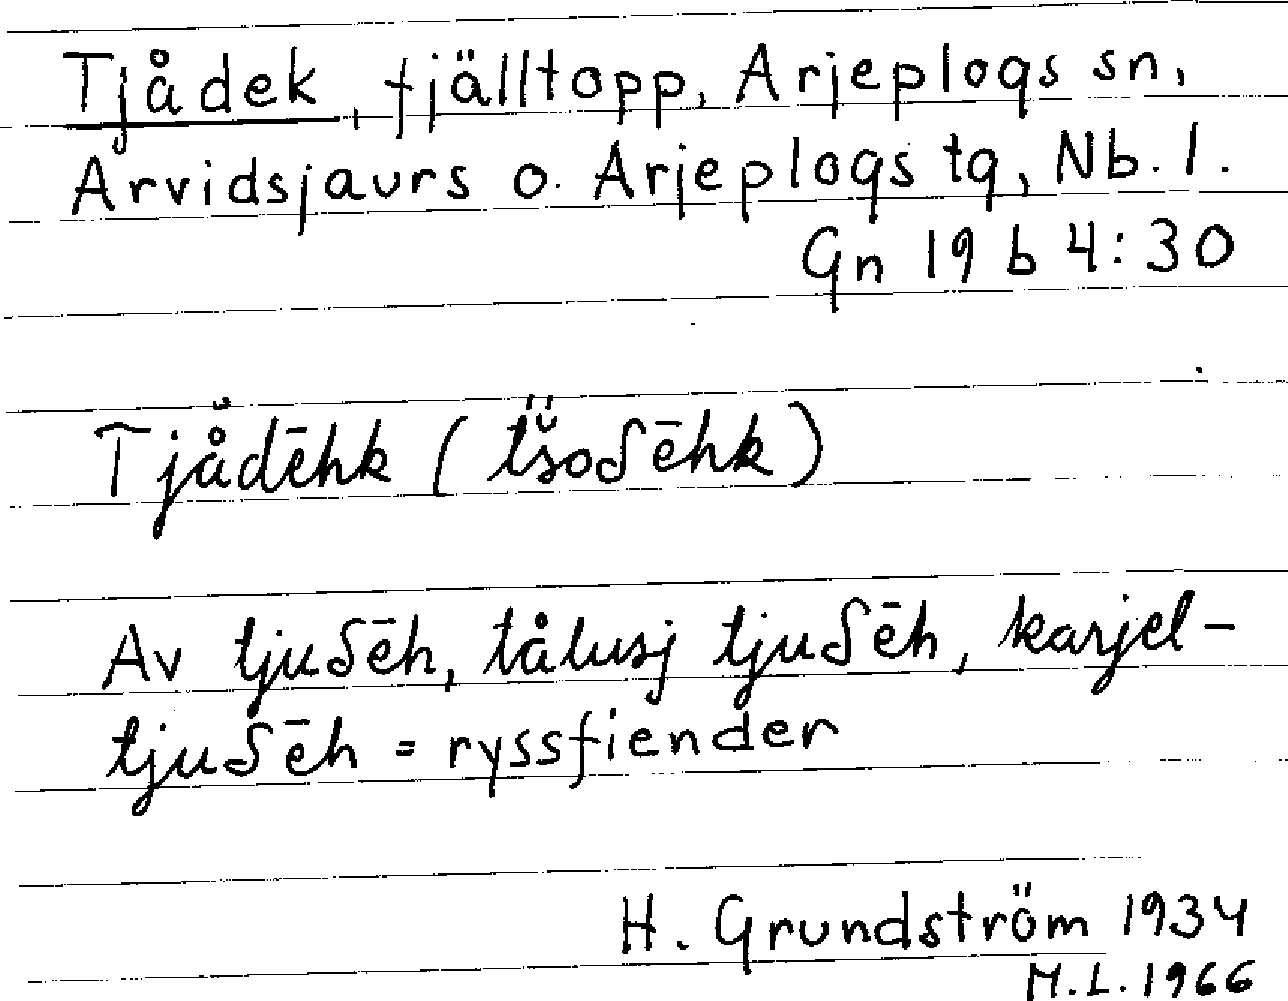 Tjådek, fjälltopp, Arjeplogs sn,
Arvidsjaurs o. Arjeplogs tg, Nb. l.
Gn 19 b 4:30
Tjå̆dēhk (tš̆oδēhk)
Av tjuδēh, tålusj tjuδēh, karjel-
tjuδēh = ryssfiender
H. Grundström 1934
M.L. 1966